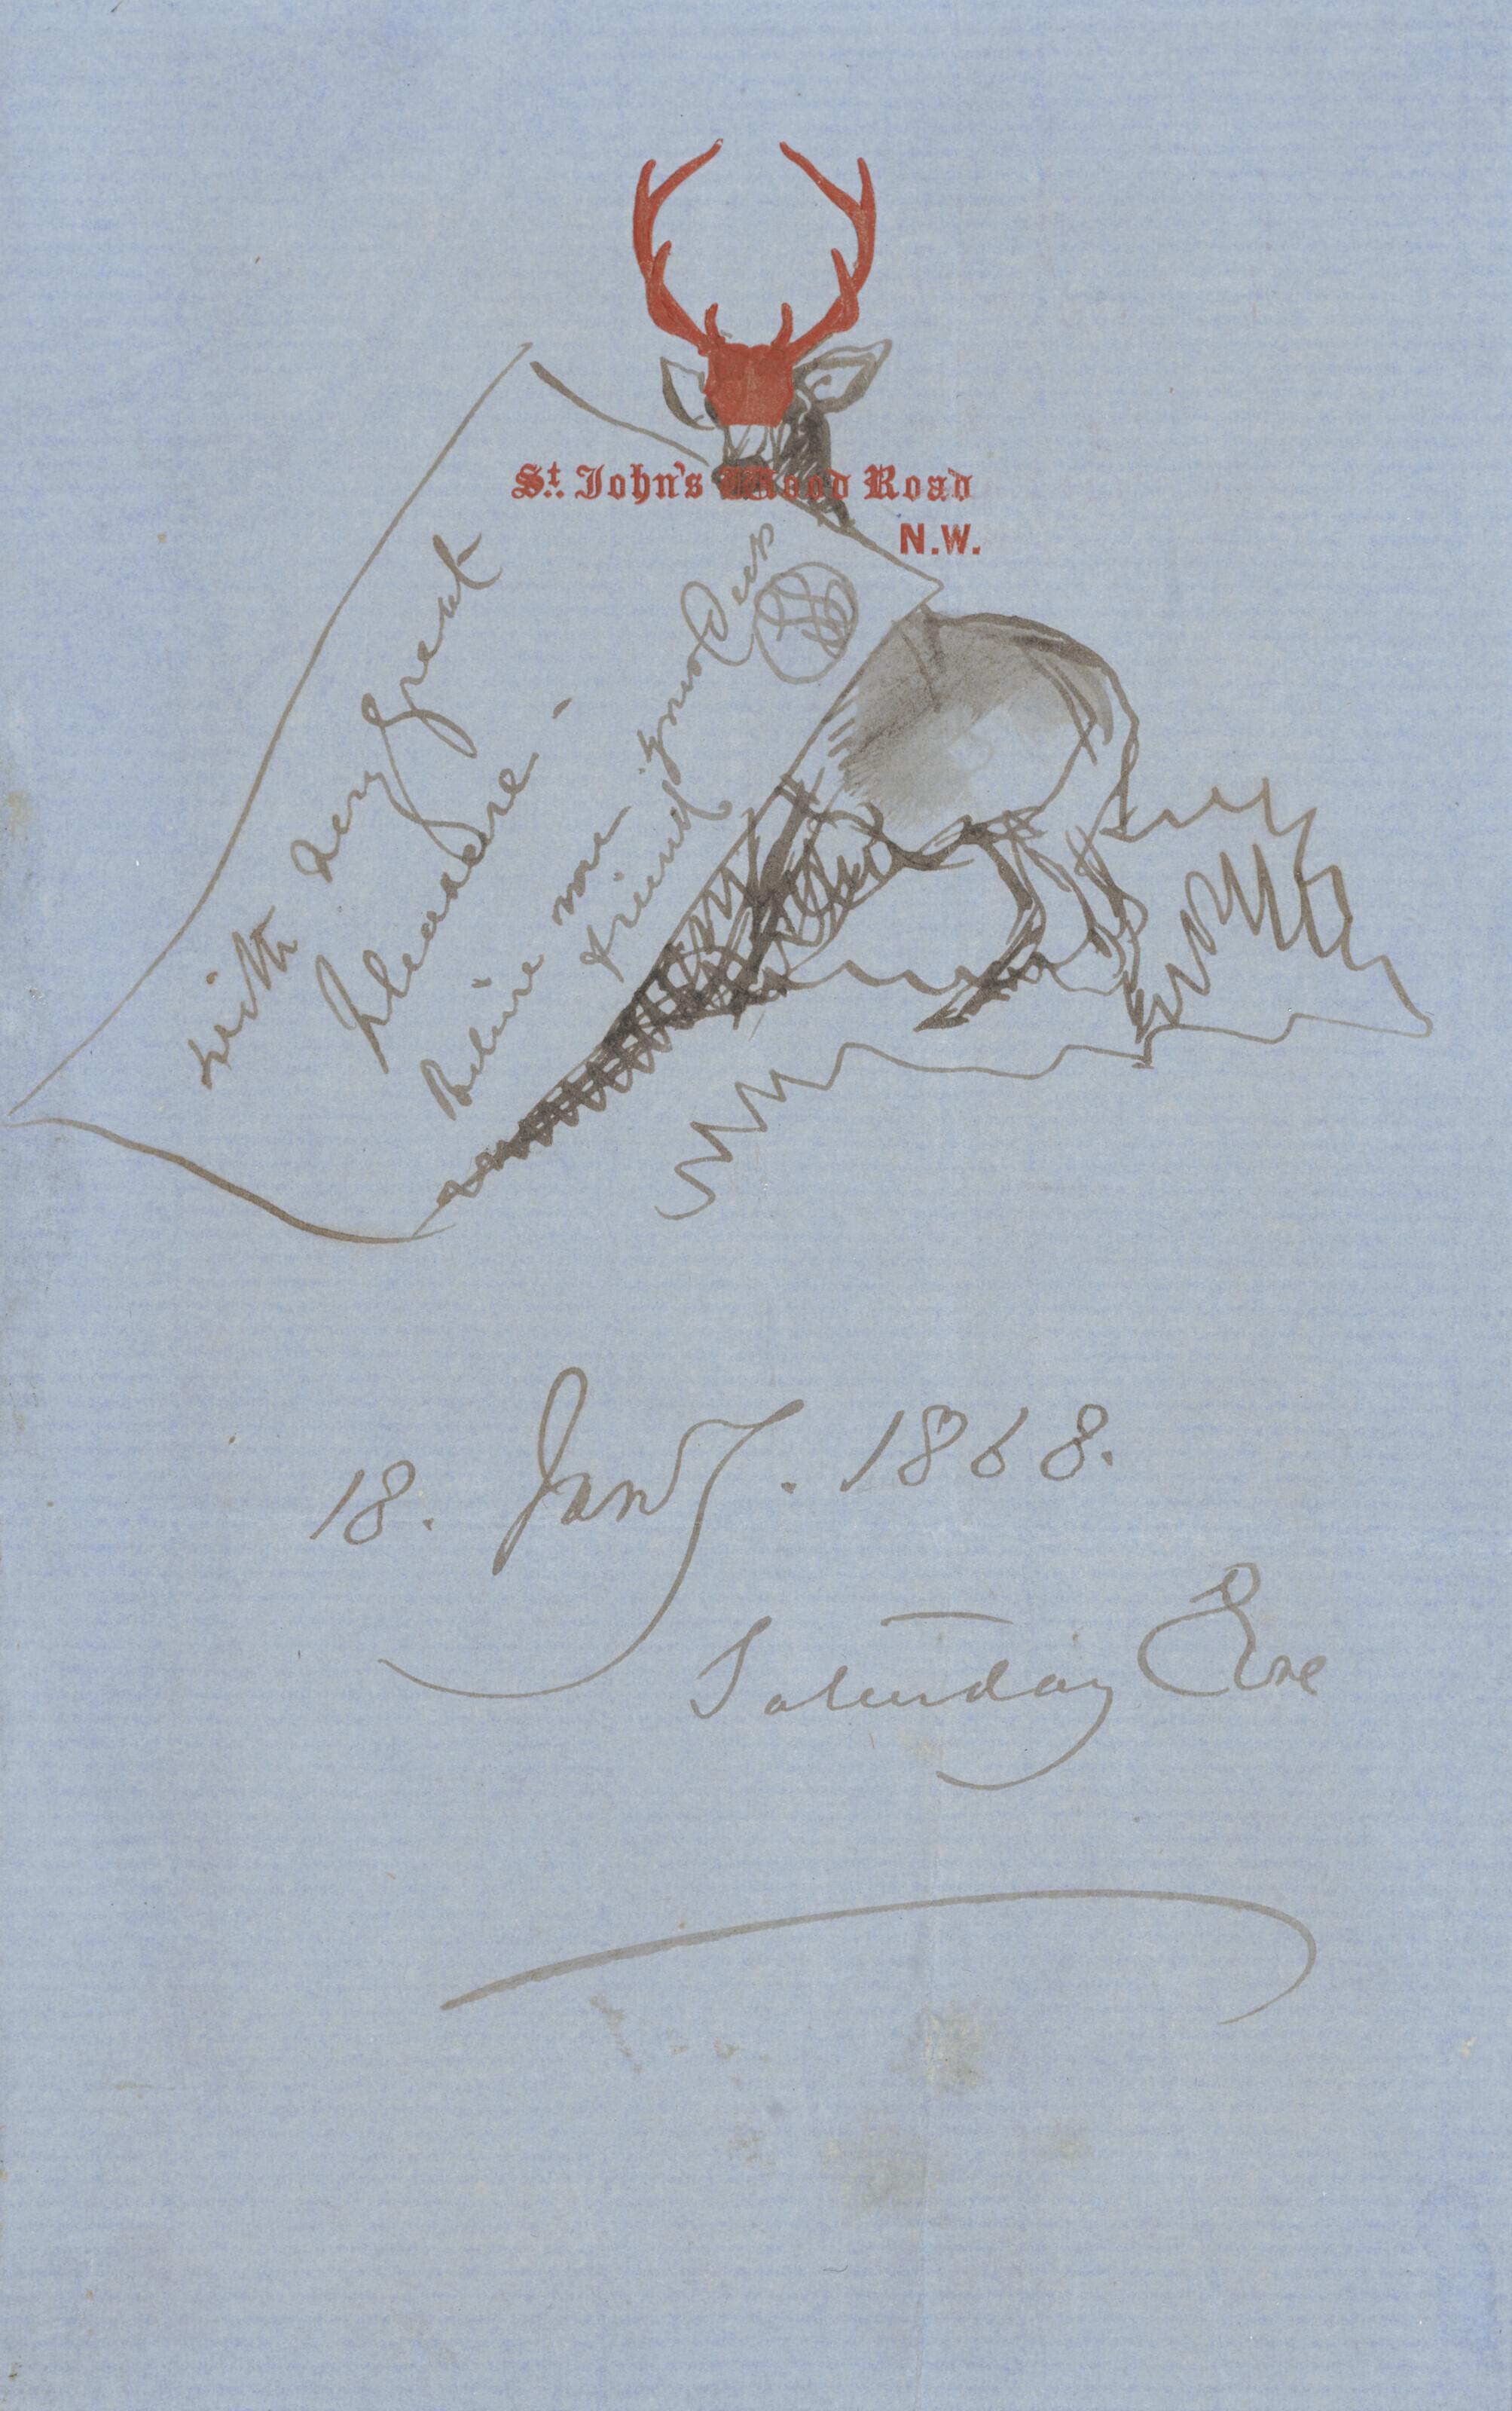 St. John's Wood Road
N.W.
with very great
pleasure -
Believe me
your Deer
friend
18. Jany. 1868.
Saturday Eve